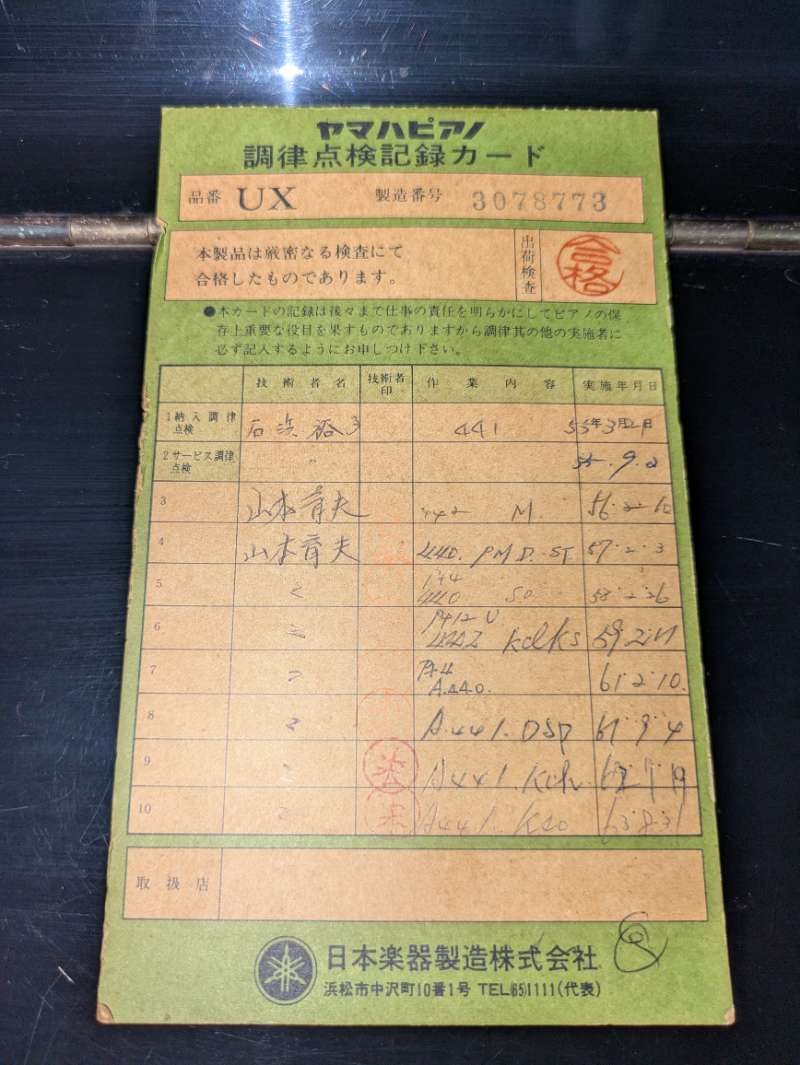 ヤマハピアノ
調律点検記録カード
品番 UX 製造番号 3078773
本製品は厳密なる検査にて
合格したものであります。
出荷検査 合格
●本カードの記録は後々まで仕事の責任を明らかにしてピアノの保
存上重要な役目を果すものでありますから調律其の他の実施者に
必ず記入するようにお申しつけ下さい。
技術者名 技術者印 作業内容 実施年月日
1 納入調律点検 石浜 441 55年3月21日
2 サービス調律点検 〃 55.9.2
3 山本育夫 442 M. 56.2.10
4 山本育夫 440. PMD. ST 57.2.3
5 440 58.2.26
6 442 59.2
7 A.440. 61.2.10.
8 A.441. DSP 61.9.4
9 A441.
10 A441.
取扱店
日本楽器製造株式会社
浜松市中沢町10番1号 TEL(65)1111(代表)